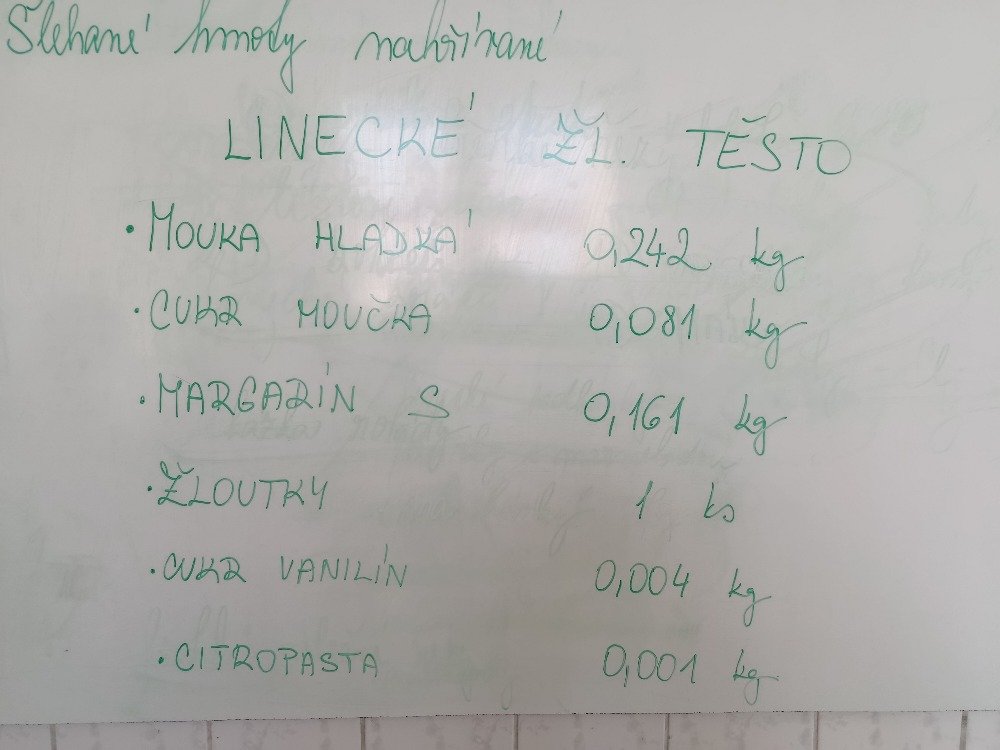 Šlehané hmoty nahřívané
LINECKÉ ŽL. TĚSTO
• MOUKA HLADKÁ 0,242 kg
• CUKR MOUČKA 0,081 kg
• MARGARÍN S 0,161 kg
• ŽLOUTKY 1 ks
• CUKR VANILÍN 0,004 kg
• CITROPASTA 0,001 kg